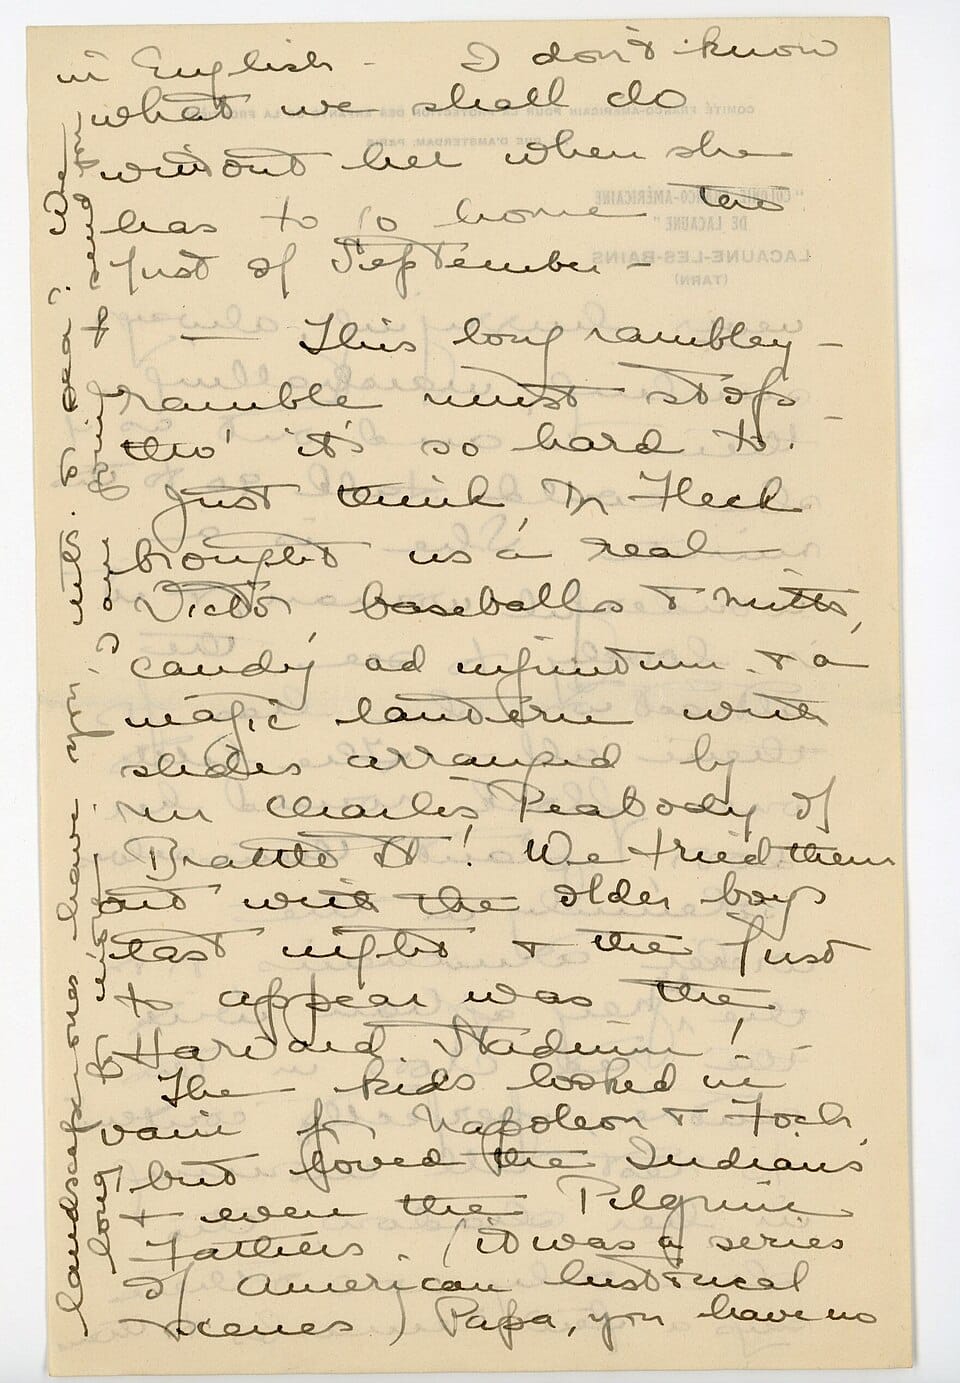 in English - I don't know
what we shall do
without her when she
has to go home the
first of September -
— This long rambley -
ramble must stop -
tho' it's so hard to.
Just think, Mr Fleck
brought us a real
Victor, baseballs & mitts,
candy ad infinitum & a
magic lantern with
slides arranged by
Mr Charles Peabody of
Brattle St! We tried them
out with the older boys
last night & the first
to appear was the
Harvard Stadium! -
The kids looked in
vain for Napoleon & Foch,
but loved the Indians
& even the Pilgrim
Fathers. (it was a series
of American historical
scenes) Papa, you have no
landscape ones have you? mts. & sea? When
long to nitre? I am going to send
COMITÉ FRANCO-AMÉRICAIN POUR LA PROTECTION DES ENFANTS DE LA FRONTIÈRE
RUE D'AMSTERDAM, PARIS
"COLONIE FRANCO-AMÉRICAINE
DE LACAUNE"
LACAUNE-LES-BAINS
(TARN)